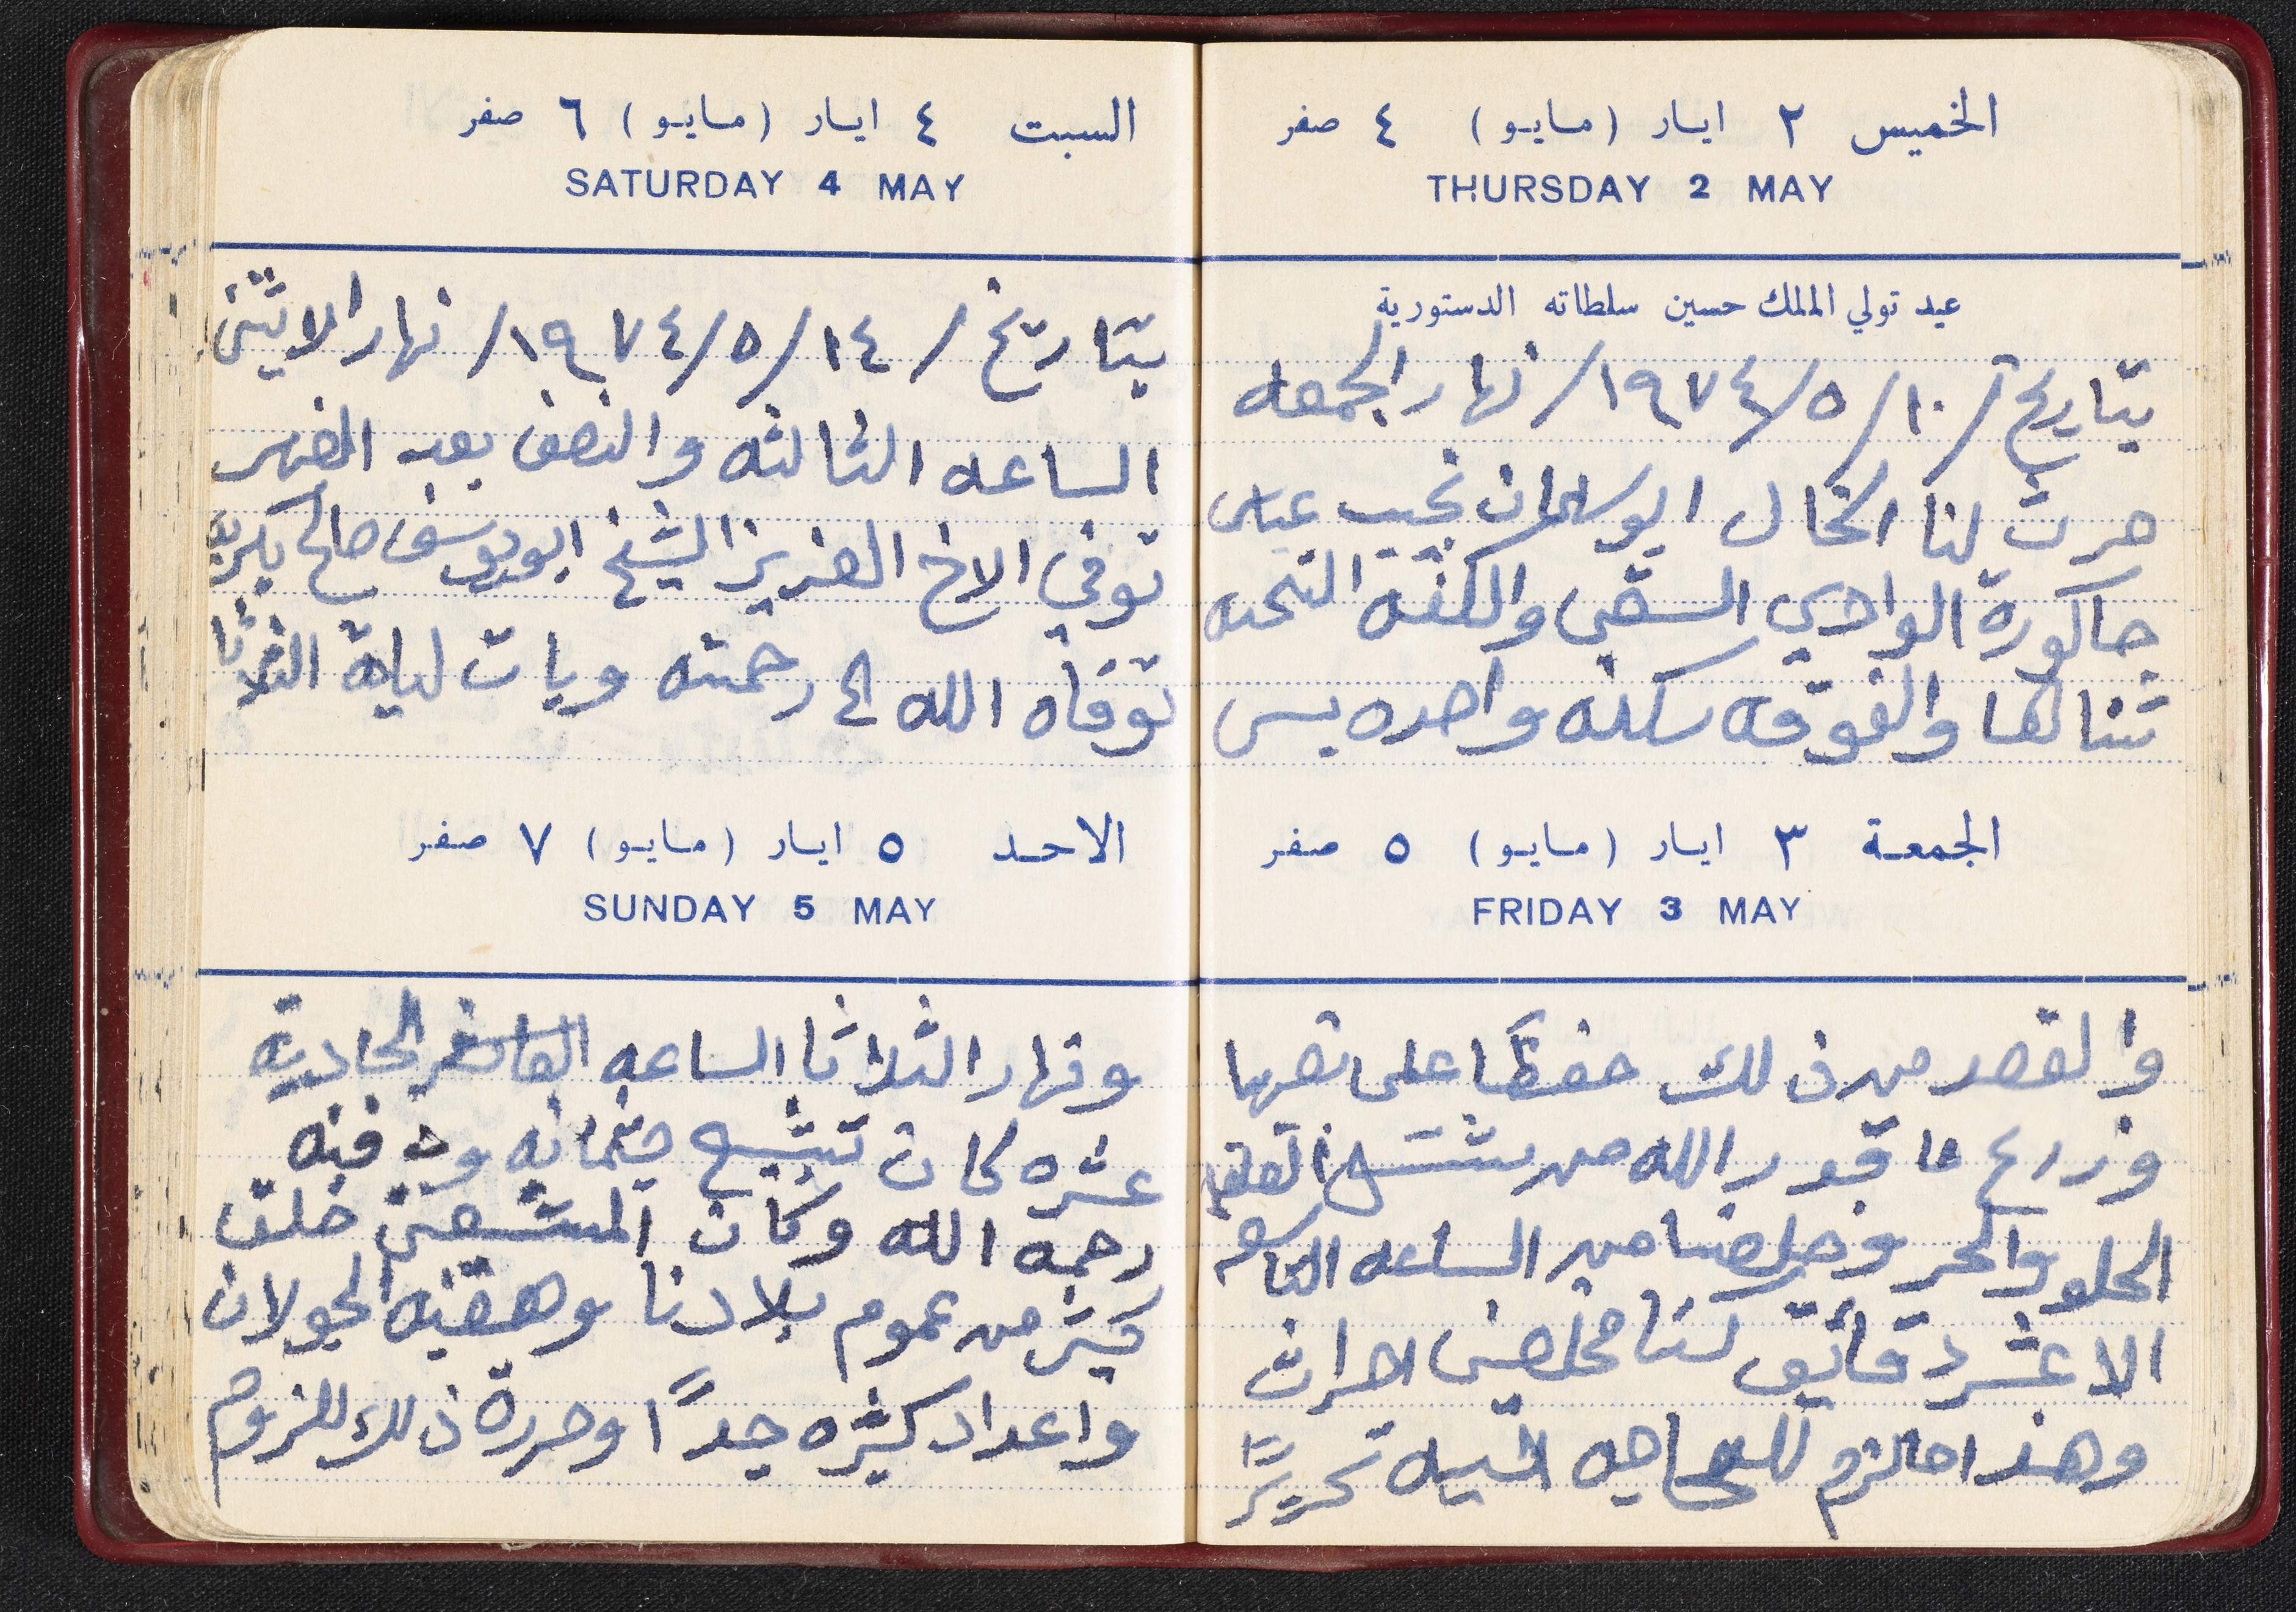 الخميس ٢ ايار (مايو) ٤ صفر
THURSDAY 2 MAY
عيد تولي الملك حسين سلطاته الدستورية
بتاريخ / ١٠/ ٥/ ١٩٧٤/ نهار الجمعه
حرث لنا الخال ابو سلمان نجيب عباس
حاكورة الوادي السقي والكفه التحته
ثنالها والفوقه سكه واحده بس
الجمعة ٣ ايار (مايو) ٥ صفر
FRIDAY 3 MAY
والقصد من ذلك حفظا على
وزرع ما قدر الله من
الحلو والحر وخلصنا من الساعه التاسعه
الا عشر دقائق كنا مخلصين احراث
وهذا مالزم للحاجه اليه تحريرًا
السبت ٤ ايار (مايو) ٦ صفر
SATURDAY 4 MAY
بتاريخ / ١٤/ ٥/ ١٩٧٤/ نهار الاثنين
الساعه الثالثه والنصف بعد الضهر
توفي الاخ العزيز الشيخ ابو يوسف صالح
توفاه الله الى رحمته وبات ليلة الثلاثا
الاحد ٥ ايار (مايو) ٧ صفر
SUNDAY 5 MAY
ونهار الثلاثا الساعه الحادية
عشره كان تشيع جثمانه ودفنه
رحمه الله وكان المشيعين خلق
كثير من عموم بلادنا وهضبة الجولان
واعداد كثيره جدًا وحررة ذلك للزوم